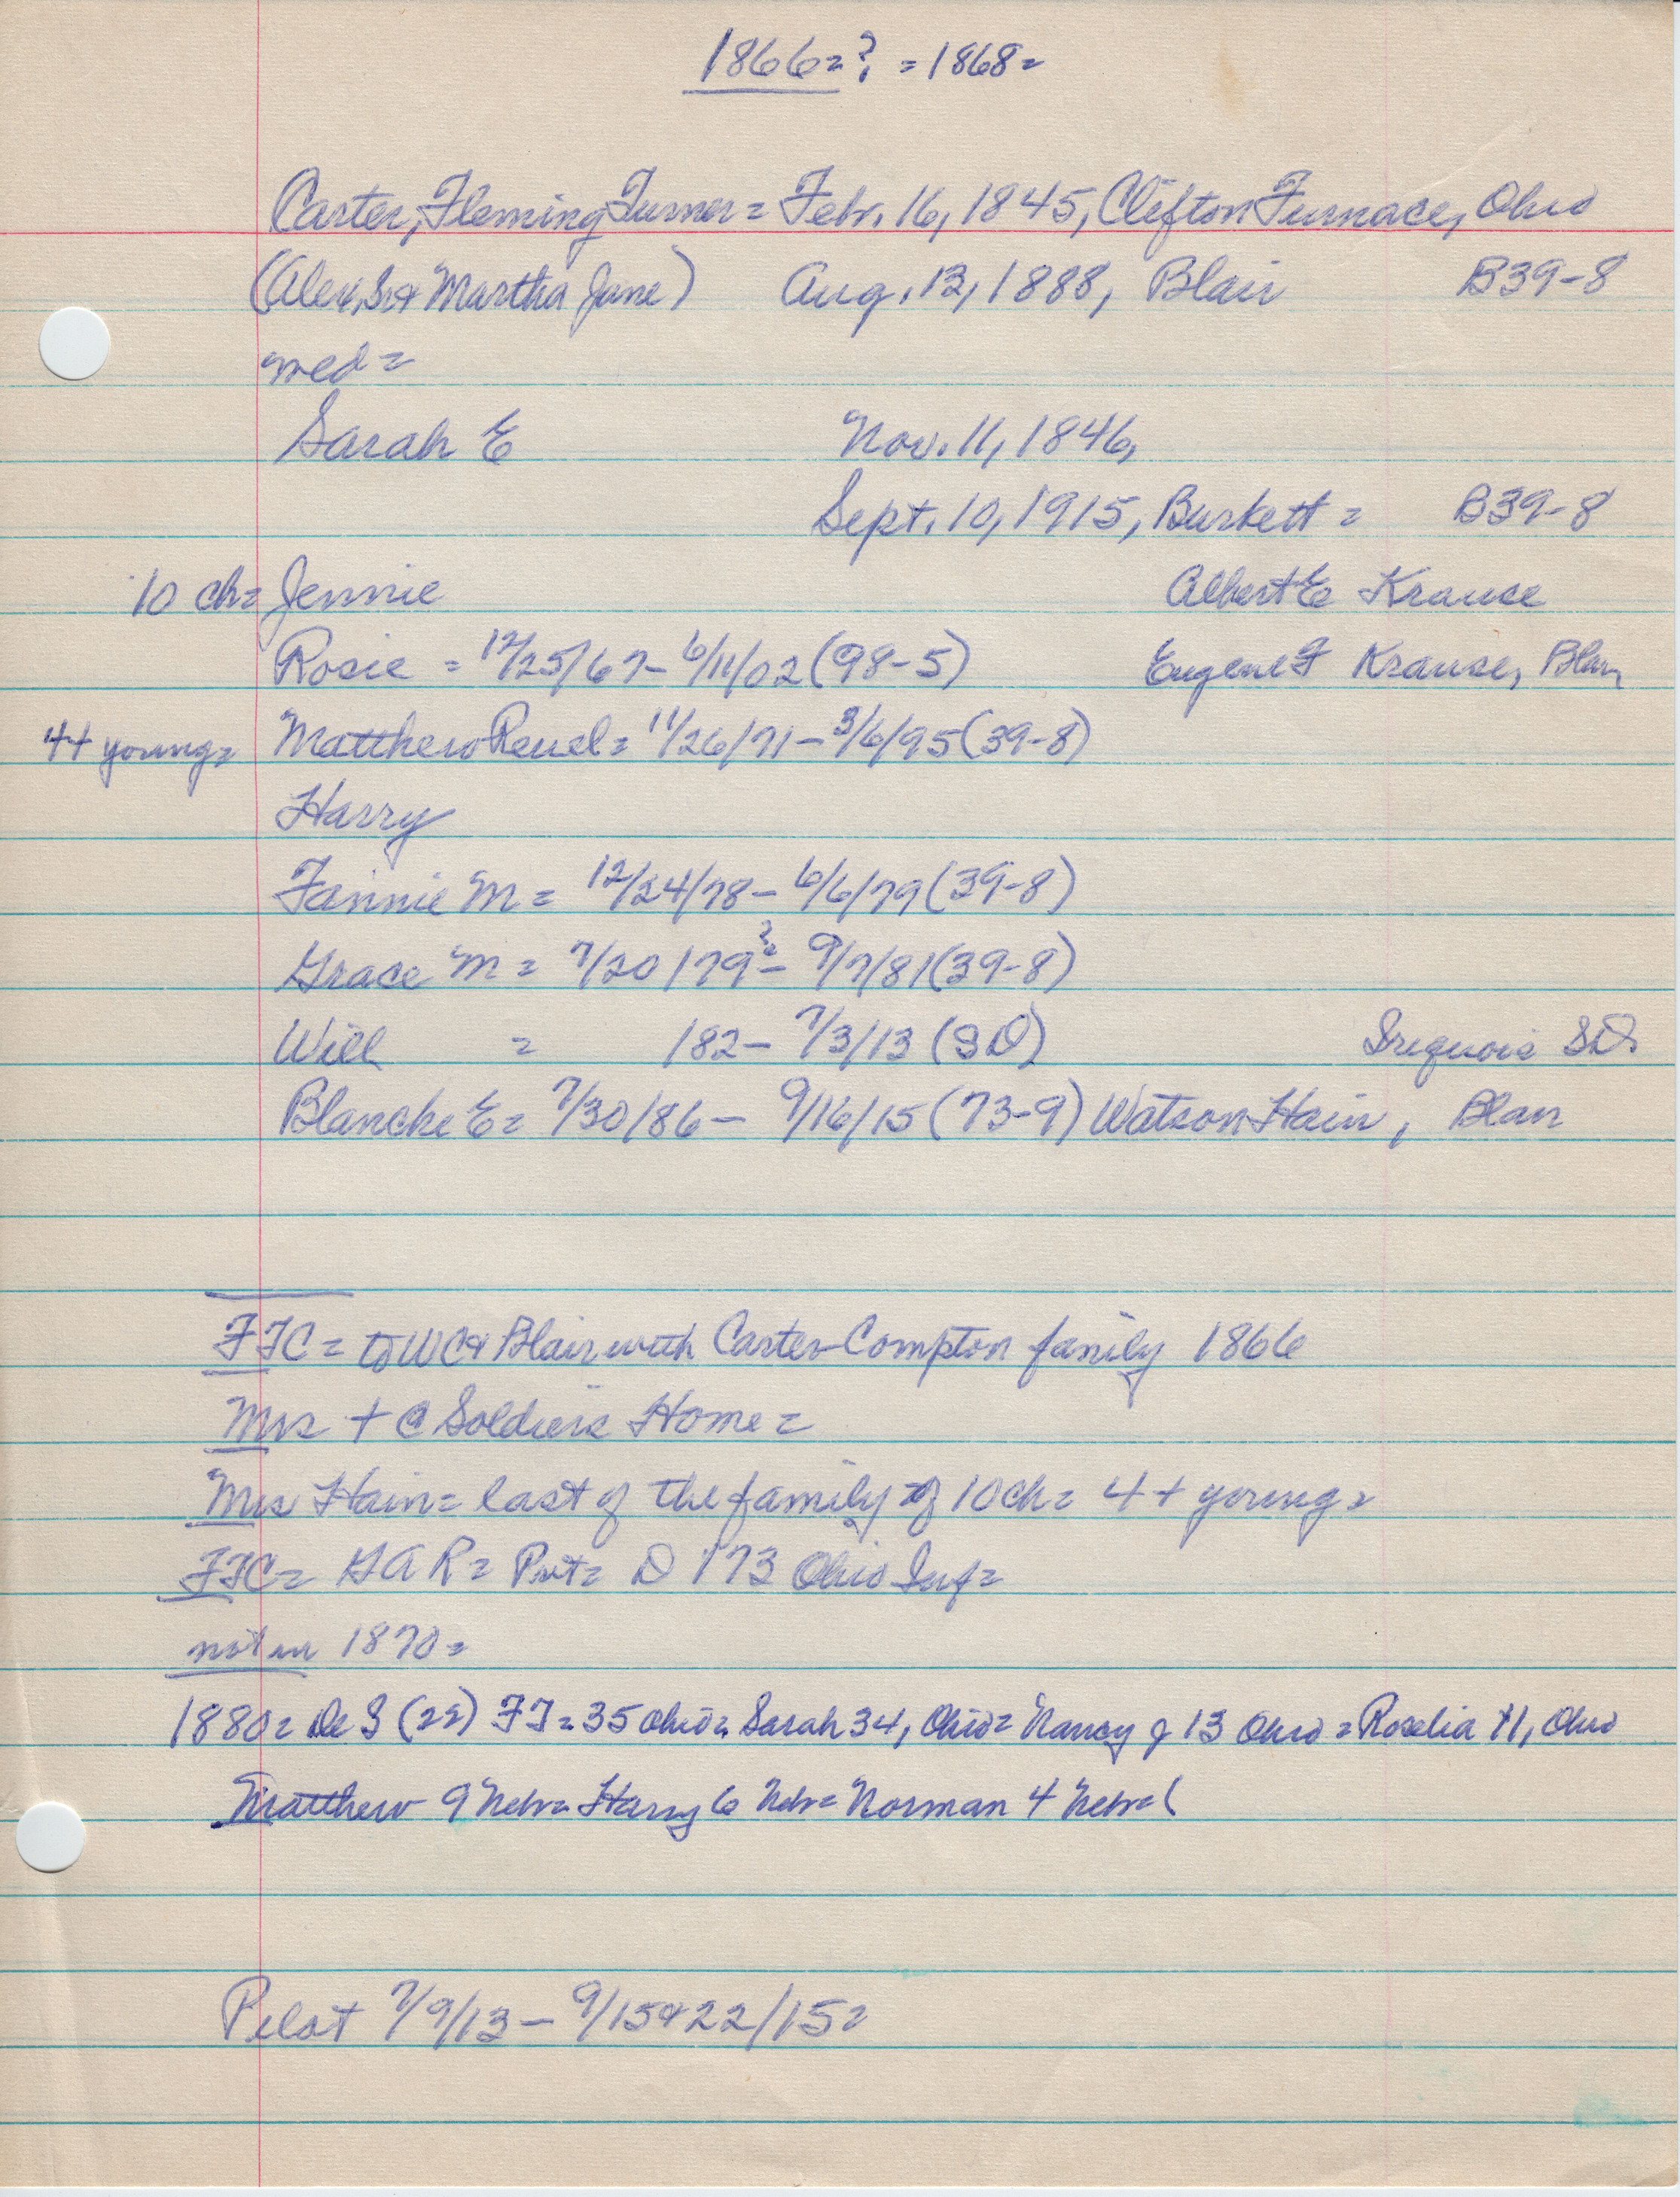 1866=? =1868=
Carter, Fleming Turner = Febr. 16, 1845, Clifton Furnace, Ohio
(Alex, Sr & Martha Jane) Aug. 13, 1888, Blair B39-8
med=
Sarah E Nov. 11, 1846,
Sept. 10, 1915, Burkett = B39-8
10 ch= Jennie Albert E Krause
Rosie = 12/25/67- 6/11/02 (98-5) Eugene F Krause, Blair
4+ young= Matthew Reuel= 11/26/71 - 3/6/95 (39-8)
Harry
Fannie M = 12/24/78- 6/6/79 (39-8)
Grace M = 7/20/79?- 9/7/81 (39-8)
Will = 182- 7/3/13 (SD) Irequois SD.
Blanche E= 7/30/86- 9/16/15 (73-9) Watson Hain, Blair
FTC = to WC & Blair with Carter-Compton family 1866
Mrs + @ Soldiers Home =
Mrs Hain= last of the family of 10 ch= 4+ young=
FTC= GAR= Pvt= D 173 Ohio Inf=
not in 1870=
1880= De S (22) FT= 35 Ohio= Sarah 34, Ohio= Nancy J 13 Ohio = Roselia 11, Ohio
Matthew 9 Nebr= Harry 6 Nebr= Norman 4 Nebr= (
Pilot 7/9/13 - 9/15&22/15=